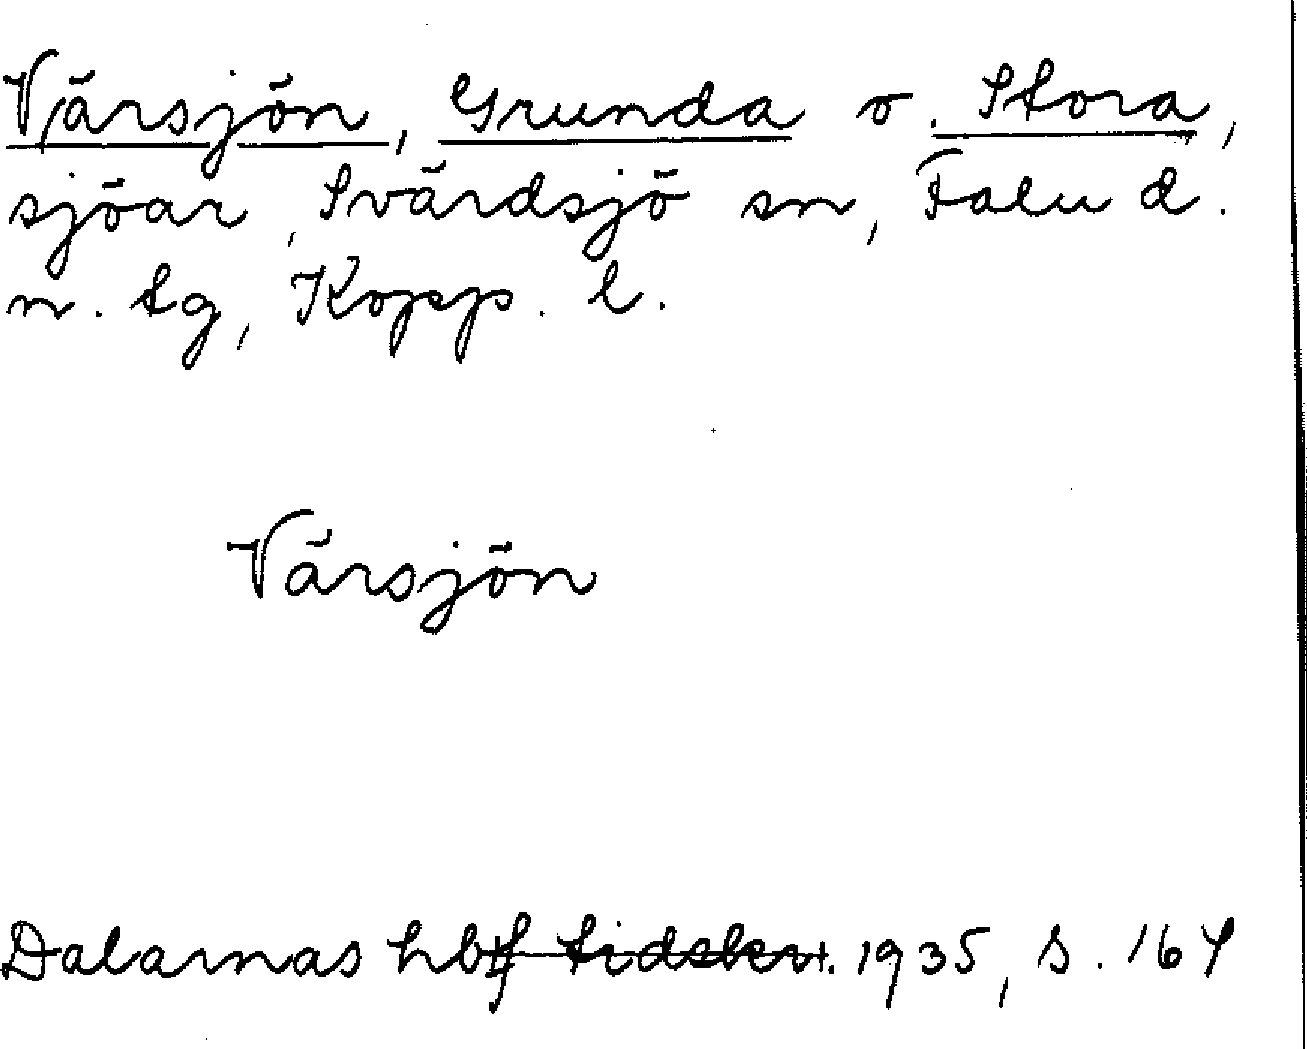 Värsjön, Grunda o. Stora,
sjöar, Svärdsjö sn, Falu d.
n. tg, Kopp. l.
Värsjön
Dalarnas hbf tidskr. 1935, s. 167